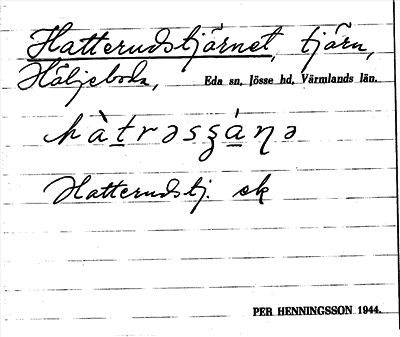 Hatterudstjärnet, tjärn,
Häljeboda, Eda sn, Jösse hd, Värmlands län.
hàt̲rəsʒá̲ɳə
Hatterudstj. ek
PER HENNINGSSON 1944.